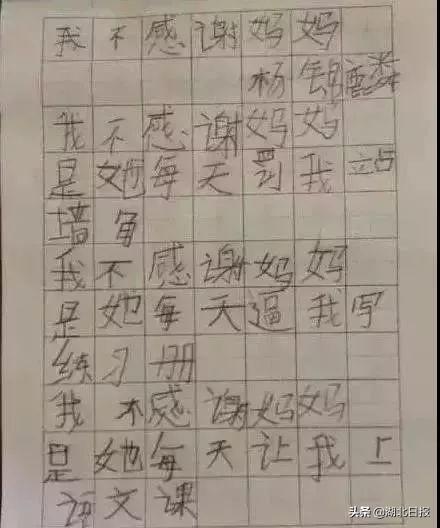 我不感谢妈妈
杨锦麟
我不感谢妈妈
是她每天罚我站
墙角
我不感谢妈妈
是她每天逼我写
练习册
我不感谢妈妈
是她每天让我上
语文课
头条 @湖北日报